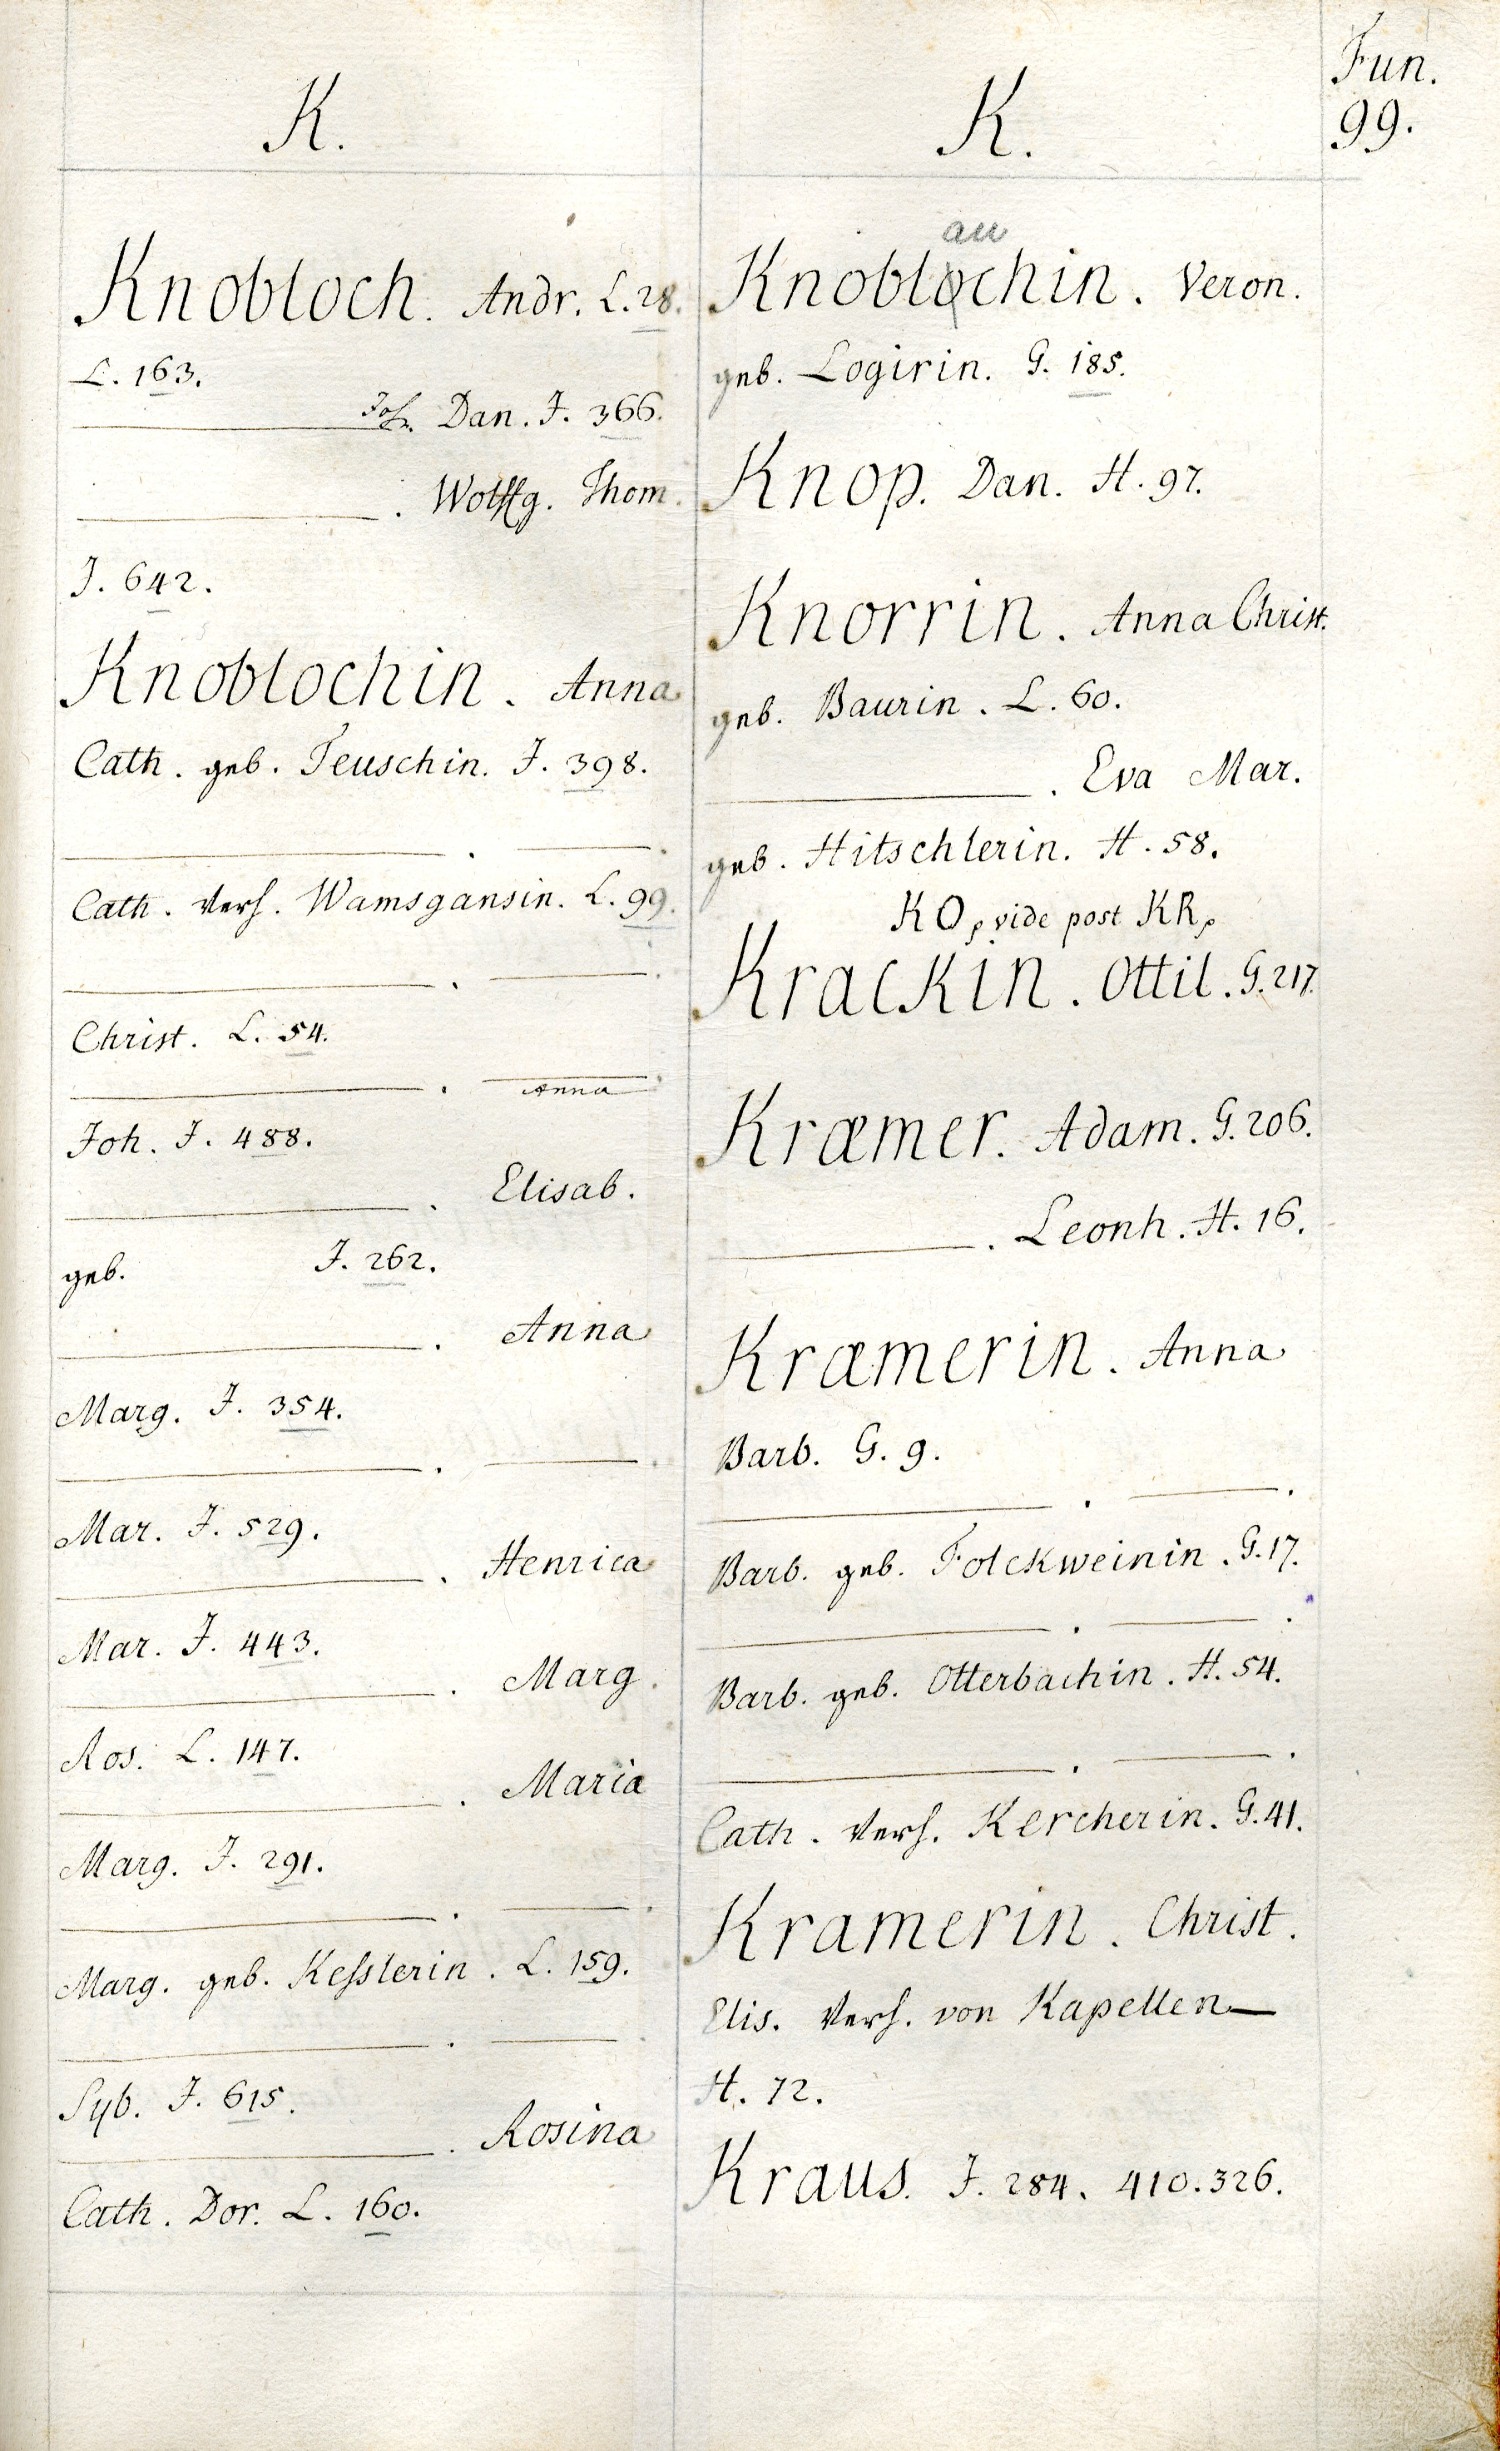 Fun.
99.
K.
Knobloch. Andr. L. 28.
L. 163.
Joh. Dan. J. 366.
. Wolffg. Thom.
J. 642.
Knoblochin. Anna
Cath. geb. Teuschin. J. 398.
Cath. Verh. Wamsgansin. L. 99.
Christ. L. 54.
Anna
Joh. J. 488.
. Elisab.
geb. J. 262.
. Anna
Marg. J. 354.
Mar. J. 529.
. Henrica
Mar. J. 443.
. Marg.
Ros. L. 147.
. Maria
Marg. J. 291.
Marg. geb. Kesslerin. L. 159.
Syb. J. 615.
. Rosina
Cath. Dor. L. 160.
K.
au
Knoblochin. Veron.
geb. Logirin. G. 185.
Knop. Dan. H. 97.
Knorrin. Anna Christ.
geb. Baurin. L. 60.
. Eva Mar.
geb. Hitschlerin. H. 58.
KO, vide post KR,
Krackin. Ottil. G. 217.
Kræmer. Adam. G. 206.
. Leonh. H. 16.
Kræmerin. Anna
Barb. G. 9.
Barb. geb. Folckweinin. G. 17.
Barb. geb. Otterbachin. H. 54.
Cath. Verh. Kercherin. G. 41.
Kramerin. Christ.
Elis. Verh. von Kapellen—
H. 72.
Kraus. J. 284. 410. 326.